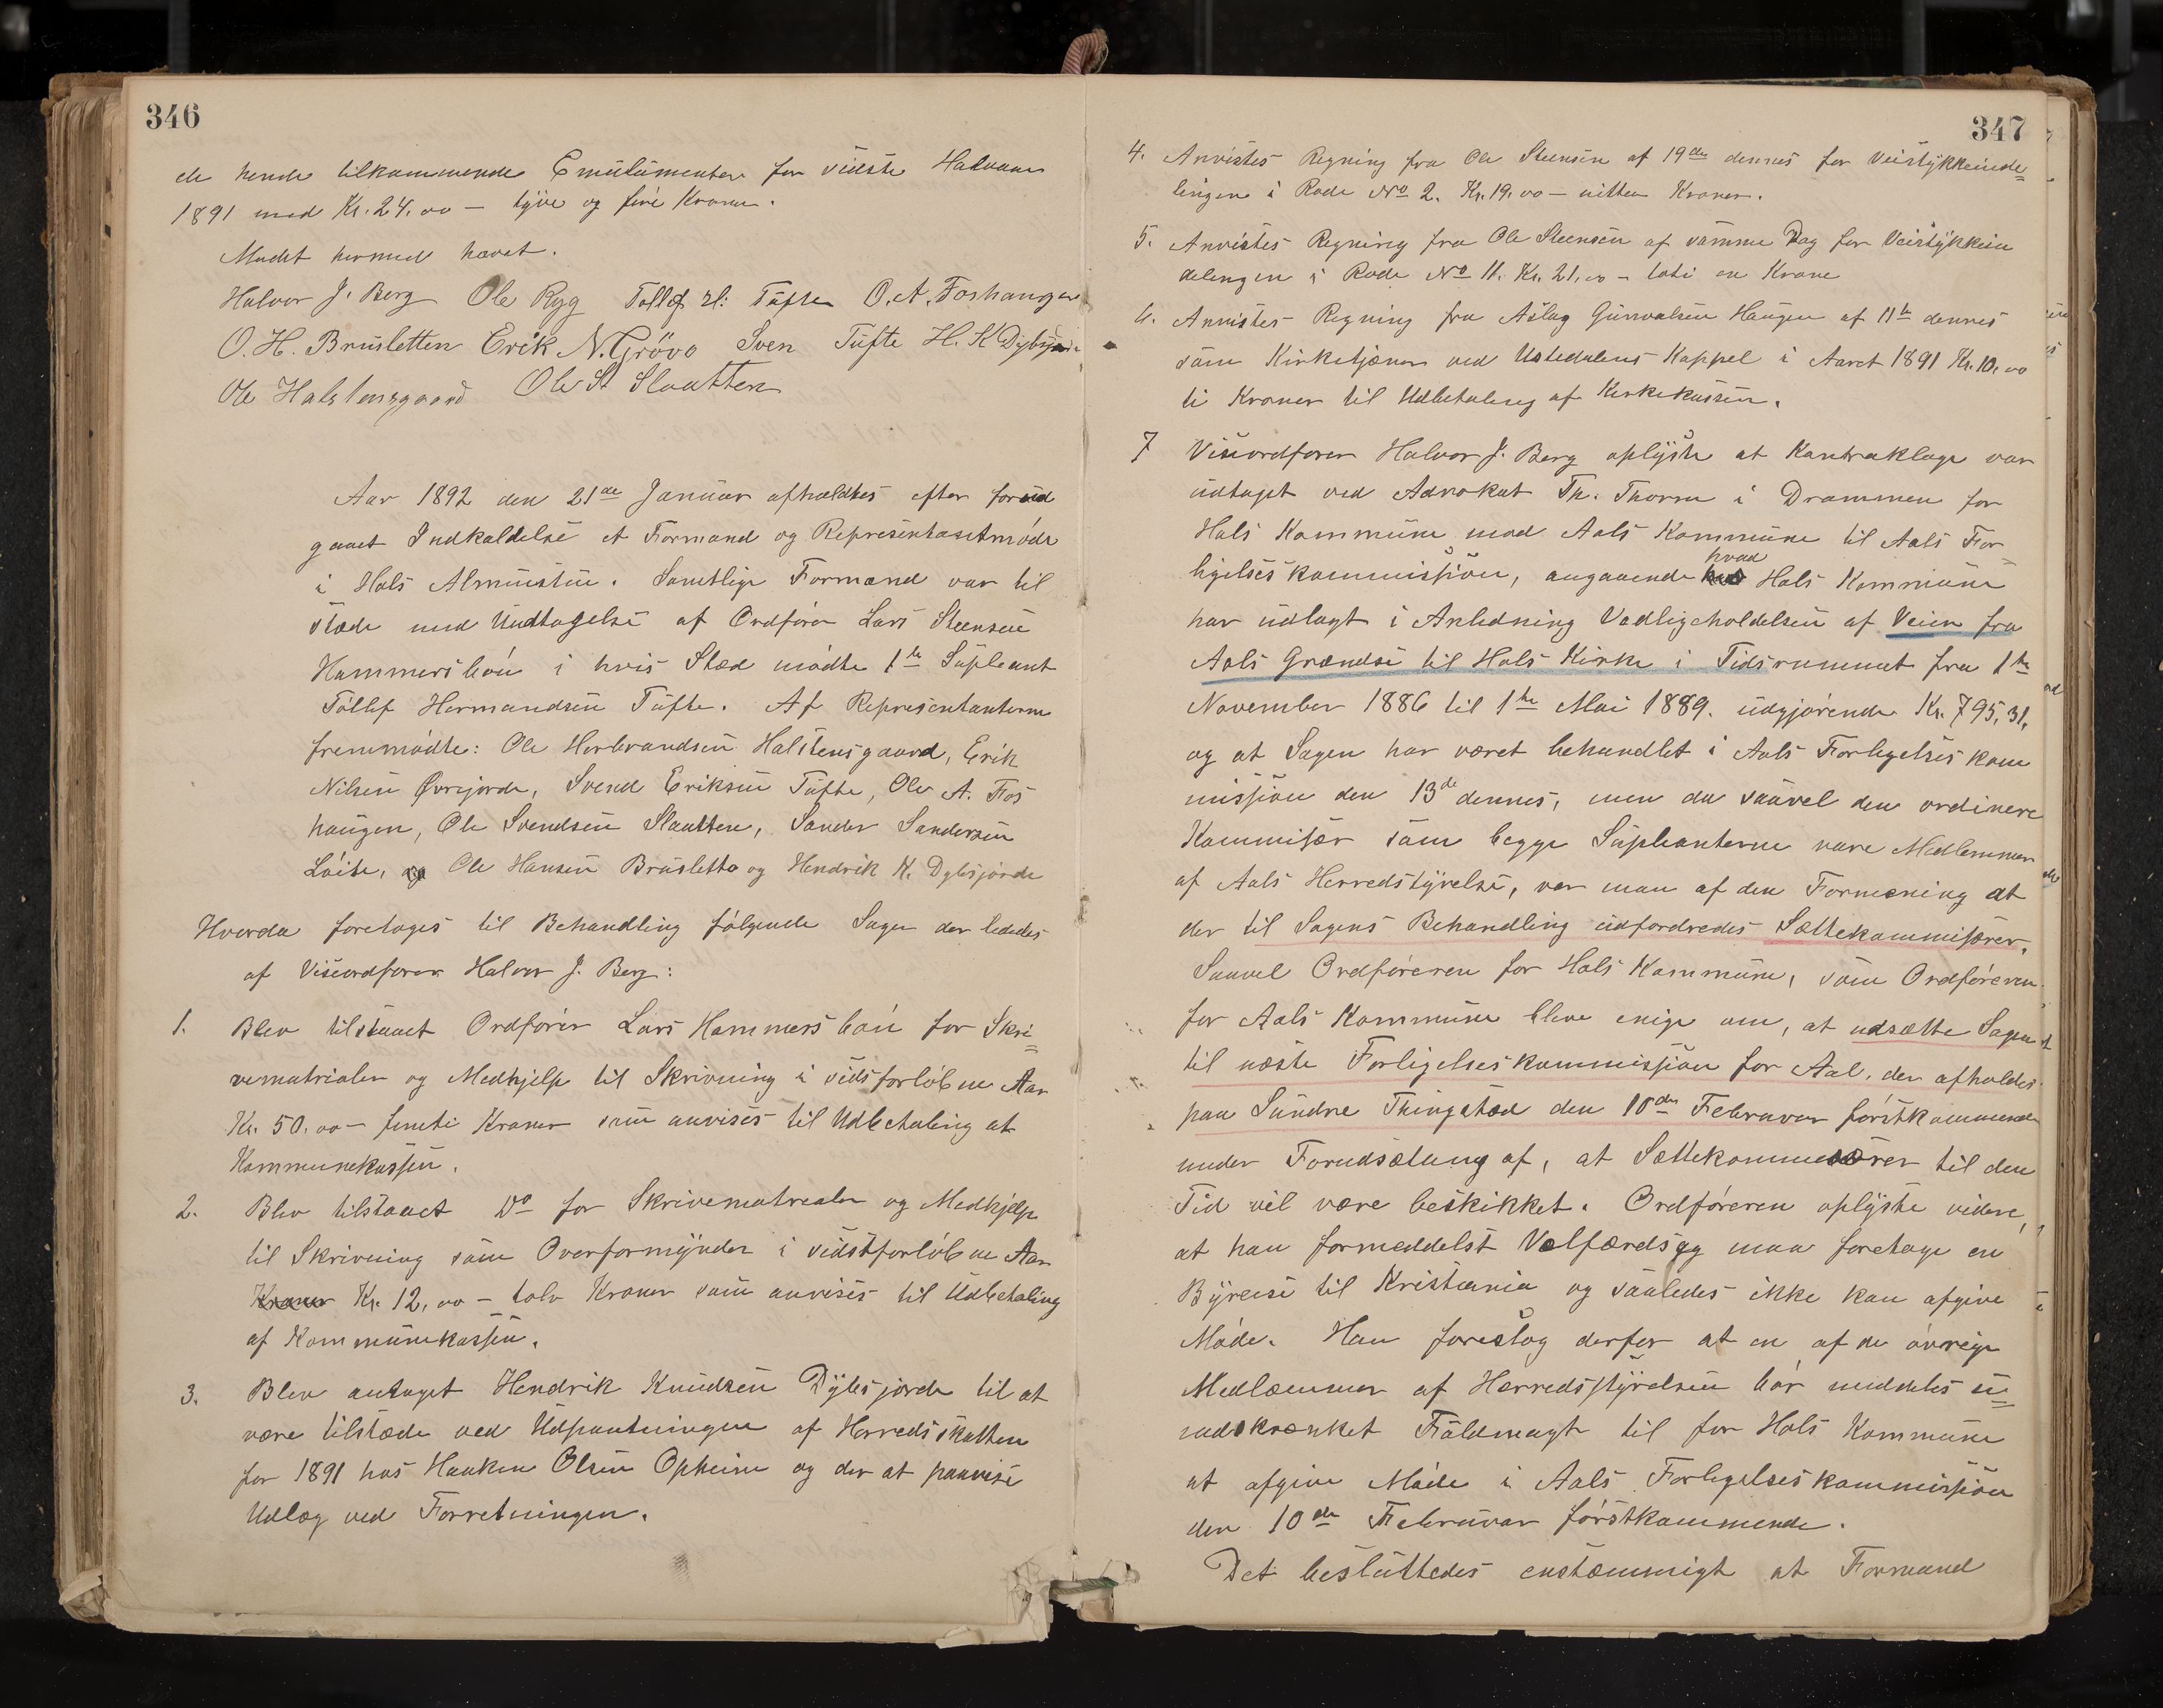 346
de hende tilkommende Emulumenter for sidste Halvaar
1891 med Kr. 24.00 – tyve og fire Kroner.
Mødet hermed hævet.
Halvor J. Berg Ole Ryg Tollef H: Tufte O. A. Foshaugen
O. H. Brusletten Erik N. Grøvo Sven Tufte H. K Dybsjord
Ole Halstensgaard Ole S Slaatten
Aar 1892 den 21de Januar afholdtes efter forud
gaaet Indkaldelse et Formand og Representantmøde
i Hols Almuestue. Samtlige Formænd var til
stæde med Undtagelse af Ordfører Lars Steensen
Hammersbøn i hvis Stæd mødte 1te Supleant
Tollef Hermandsen Tufte. Af Representanterne
fremmødte: Ole Herbrandsen Halstensgaard, Erik
Nilsen Øvrejorde, Svend Eriksen Tufte, Ole A. Fos
haugen, Ole Svendsen Slaatten, Sander Sandersen
Løite, og Ole Hansen Brusletto og Hendrik K. Dybsjorde
Hvorda foretoges til Behandling følgende Sager der lededes
af Viseordfører Halvor J. Berg:
1. Blev tilstaaet Ordfører Lars Hammersbøn for Skri=
vematrialer og Medhjelp til Skrivning i sidsforløbne Aar
Kr. 50.00 – femti Kroner som anvises til Udbetaling af
Kommunekassen.
2. Blev tilstaaet Do for Skrivematrealer og Medhjelp
til Skrivning som Overformynder i sidstforløbne Aar
Kroner Kr. 12,00 – tolv Kroner som anvises til Udbetaling
af Kommunekassen.
3. Blev antaget Hendrik Knudsen Dybsjorde til at
være tilstæde ved Udpantningen af Herredsskatten
for 1891 hos Haaken Olsen Opheim og der at paavise
Udlæg ved Forretningen.
347
4. Anvistes Regning fra Ole Steensen af 19de dennes for Veistykkeinde=
lingen i Rode No 2. Kr. 19.00 – nitten Kroner.
5. Anvistes Regning fra Ole Steensen af samme Dag for Veistykkein
delengen i Rode No 11. Kr. 21.00 – toti en Krone
6. Anvistes Regning fra Aslag Gunvalsen Haugen af 11te dennes
som Kirketjæner ved Ustedalens Kappel i Aaret 1891 Kr. 10.00
ti Kroner til Udbetaling af Kirkekassen.
7 Viseordfører Halvor J. Berg oplyste at Kontraklage var
udtaget ved Advokat Th. Thorne i Drammen for
Hols Kommune mod Aals Kommune til Aals For
hvad
ligelseskommission, angaaende Hols Kommune
har udlagt i Anledning Vedligeholdelsen af Veien fra
Aals Grændse til Hols Kirke i Tidsrummet fra 1te
November 1886 til 1te Mai 1889. udgjørende Kr. 795,31,
og at Sagen har været behandlet i Aals Forligelseskom
mission den 13de dennes, men da saavel den ordinere
Kommisær som begge Supleanterne vare Medlemmer
af Aals Herredstyrelse, var man af den Formening at
der til Sagens Behandling udfordredes Sættekommisærer.
Saavel Ordføreren for Hols Kommune, som Ordføreren
for Aals Kommune bleve enige om, at udsætte Sagen
til næste Forligelseskommission for Aal, der afholdes
paa Sundre Thingstæd den 10de Februar førstkommende
under Forudsætning af, at Sættekommesærer til den
Tid vil være beskikket. Ordføreren oplyste videre,
at han formeddelst Velfærdsæg maa foretage en
Byreise til Kristiania og saaledes ikke kan afgive
Møde. Han foreslog derfor at en af de øvrige
Medlæmmer af Herredsstyrelsen bør meddeles u=
indskrænket Fuldmagt til for Hols Kommune
at afgive Møde i Aals Forligelseskommission
den 10de Februar førstkommende.
Det besluttedes enstæmmigt at Formand